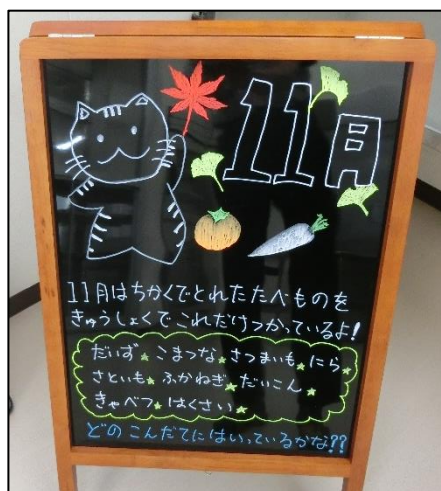 11月
11月はちかくでとれたたべものを
きゅうしょくでこれだけつかっているよ!
だいず★こまつな★さつまいも★にら★
さといも★ふかねぎ★だいこん★
きゃべつ★はくさい★
どのこんだてにはいっているかな??